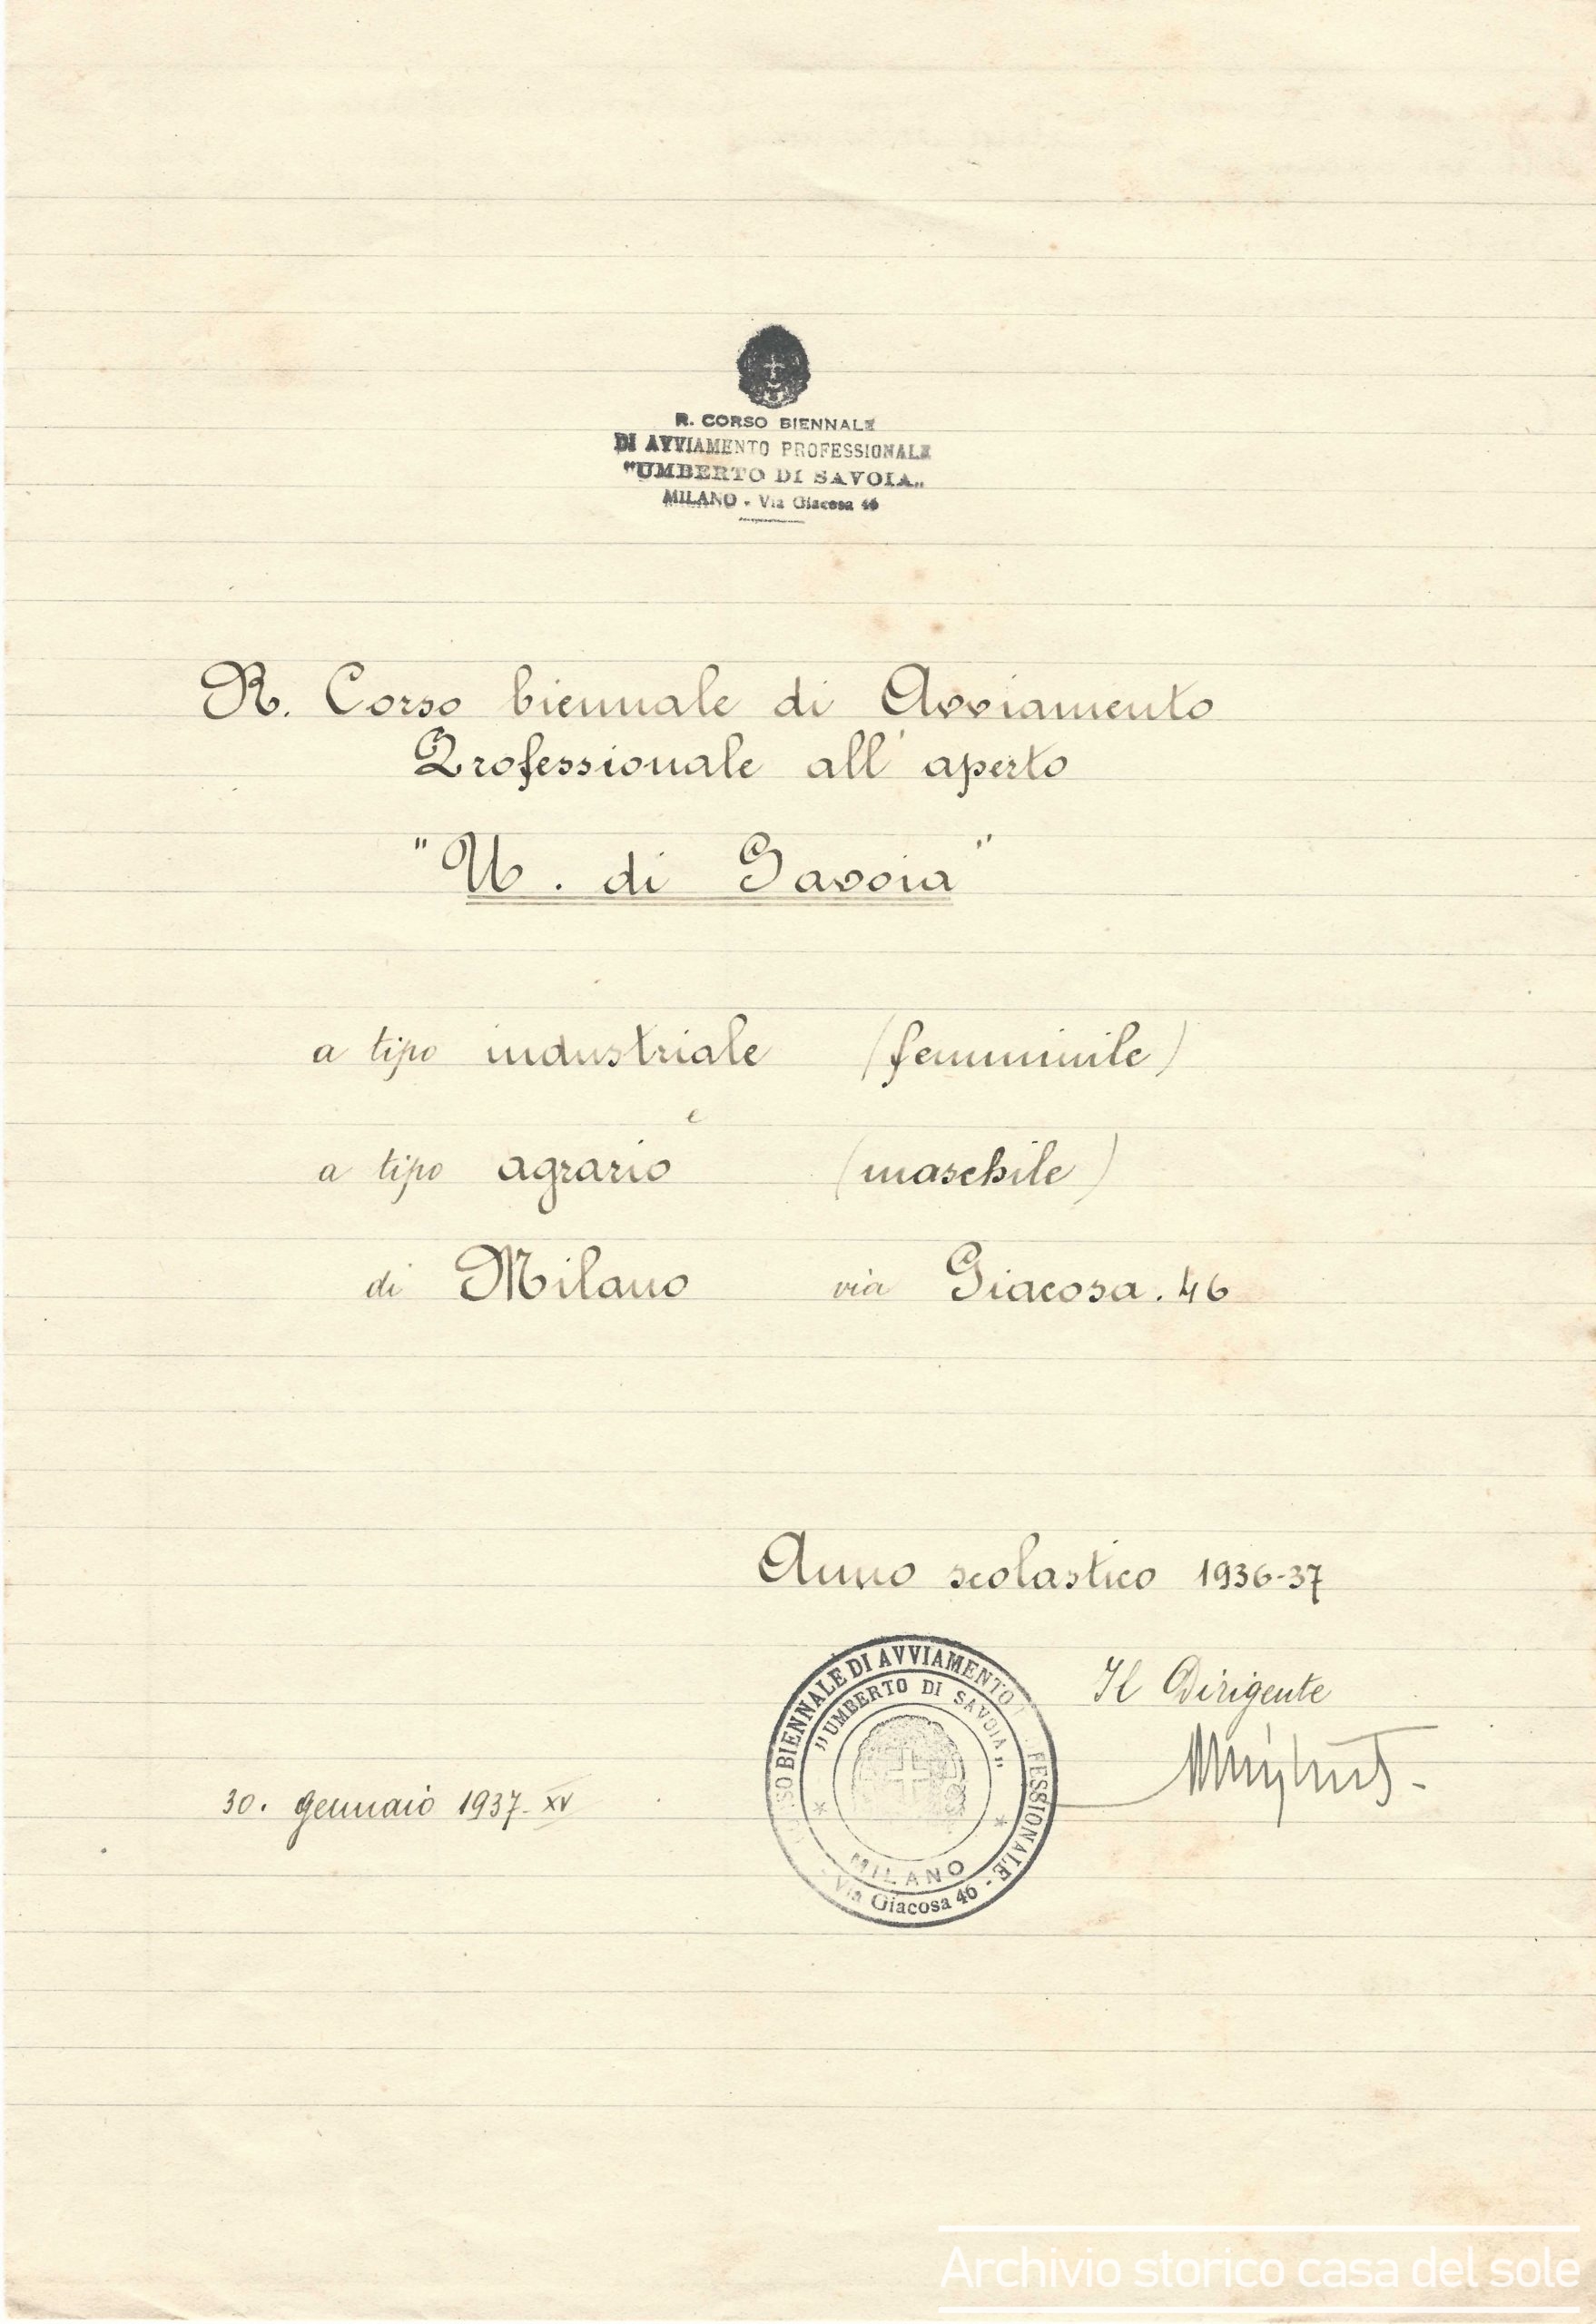 R. CORSO BIENNALE
DI AVVIAMENTO PROFESSIONALE
"UMBERTO DI SAVOIA„
MILANO - Via Giacosa 46
R. Corso biennale di Avviamento
Professionale all'aperto
"U. di Savoia"
a tipo industriale (femminile)
e
a tipo agrario (maschile)
di Milano via Giacosa. 46
Anno scolastico 1936-37
BIENNALE DI AVVIAMENTO
„UMBERTO DI SAVOIA„
MILANO
Via Giacosa 46 -
Il Dirigente
30. gennaio 1937-XV
Archivio storico casa del sole